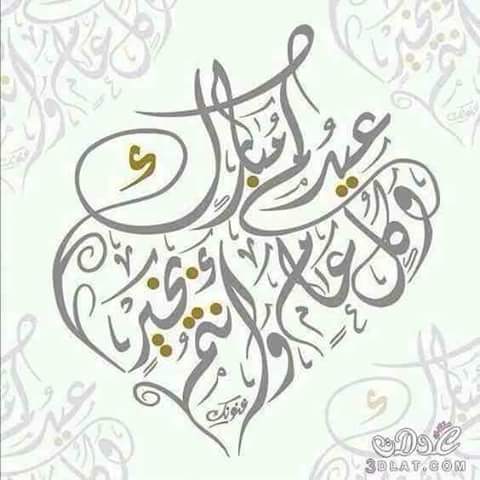 عيدكم مبارك
وكل عام
وأنتم بخير
عدلات
3DLAT.COM